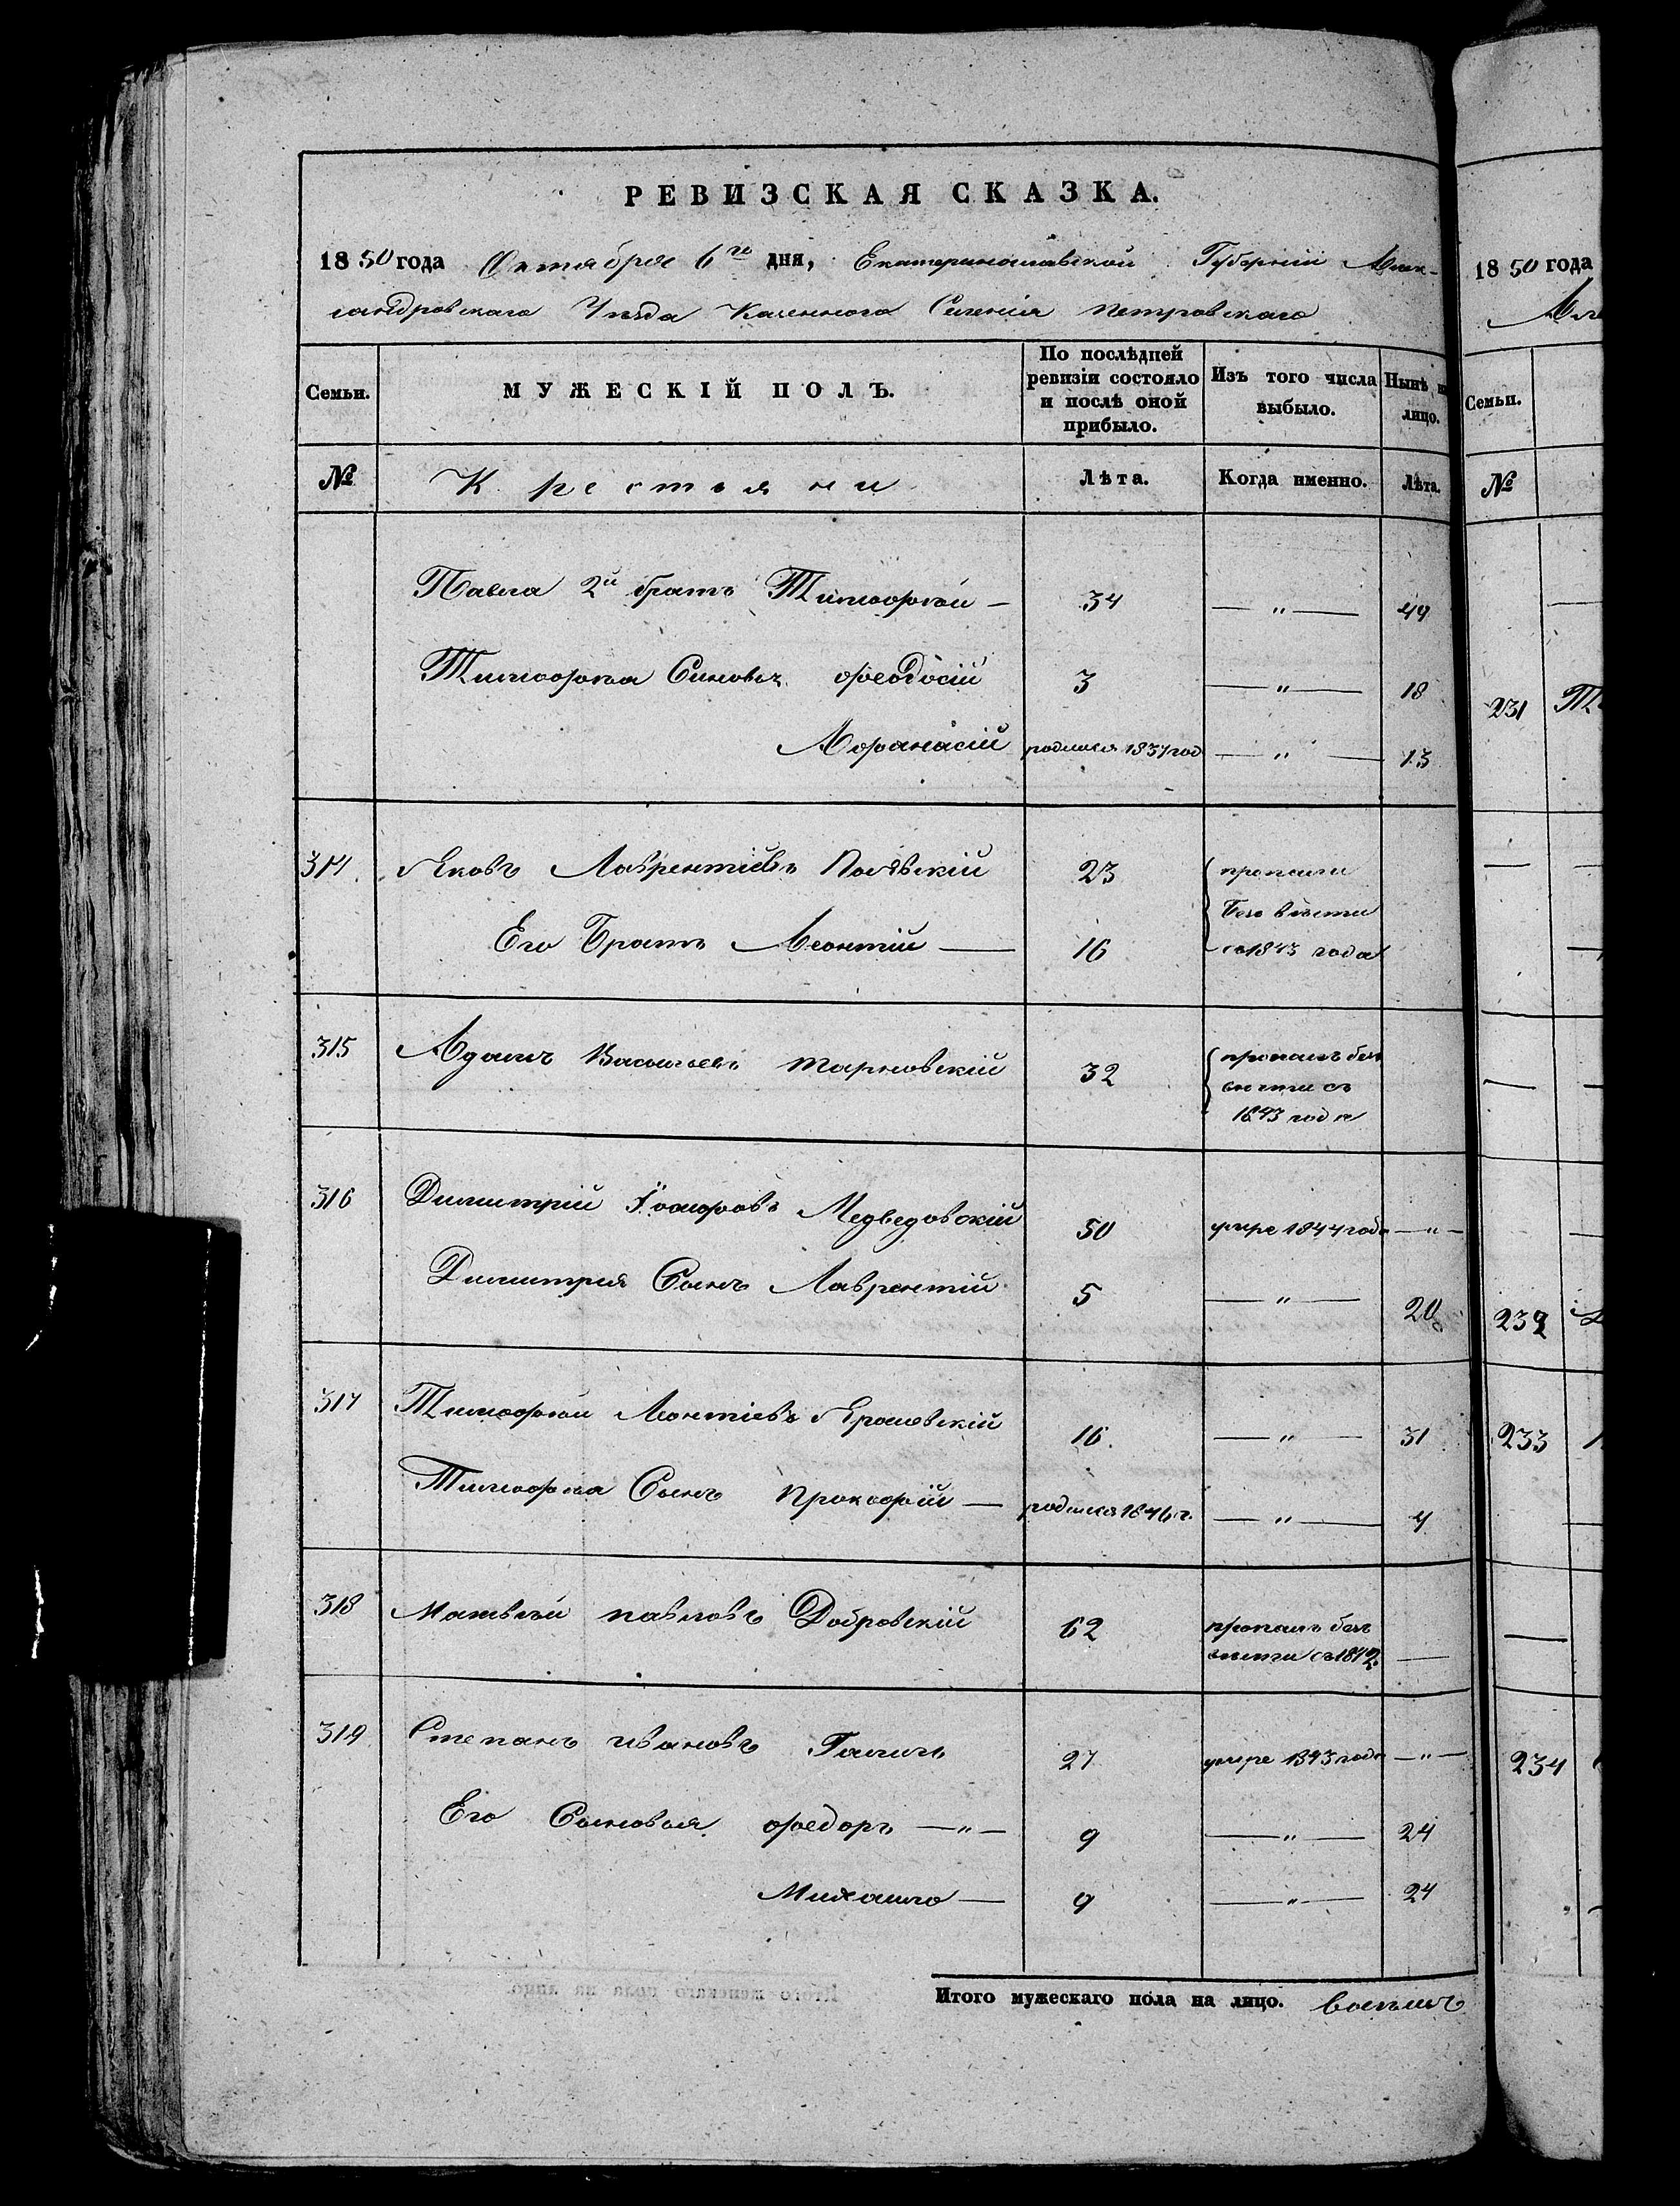 РЕВИЗСКАЯ СКАЗКА.
1850 года Октября 6го дня, Екатеринославской Губерніи Алек-
сандровскаго Уезда Казеннаго Селенія Петровскаго
Семьи. МУЖЕСКІЙ ПОЛЪ. По послѣдней ревизіи состояло и послѣ оной прибыло. Изъ того числа выбыло. Нынѣ на лицо.
№ Крестьяни Лѣта. Когда именно. Лѣта.
Павла 2й братъ Тимофей — 34 — „ — 49
Тимофея Синовья Феодосій 3 — „ — 18
Афанасій родился 1837 год — „ — 13
314 Яковъ Лаврентіевъ 23 пропали
безъ вѣсти
Его Братъ Леонтій — 16 со 1843 года
315 Адамъ Васильевъ Тарновскій 32 пропалъ безъ
вести съ
1843 года
316 Димитрій Медведовскій 50 умре 1844 года — „ —
Димитрия Сынъ Лаврентій 5 — „ — 20
317 Тимофей Леонтіевъ Ярошевскій 16. — „ — 31
Тимофея Сынъ Прокофій — родился 1846 г. — „ — 4
318 Матвѣй Павловъ Добровскій 62 пропалъ безъ
вести съ 1842. —
319 Степанъ Ивановъ 27 умре 1843 года — „ —
Его Сыновья Федоръ — „ — 9 — „ — 24
Михайло — 9 — „ — 24
Итого мужескаго пола на лицо. восемь
1850 года
Семьи.
№
231
232
233
234